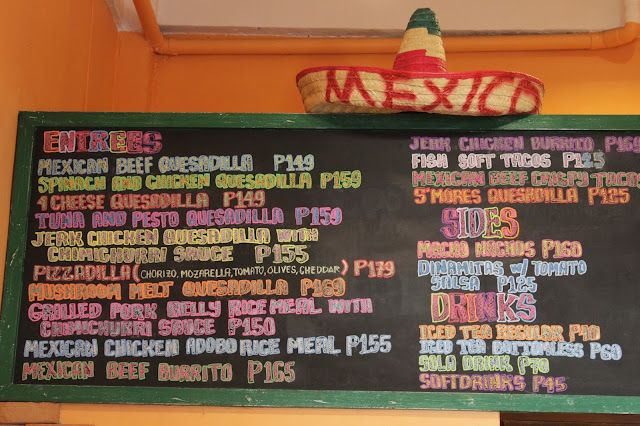 MEXICO
ENTREES
MEXICAN BEEF QUESADILLA P149
SPINACH AND CHICKEN QUESADILLA P159
4 CHEESE QUESADILLA P149
TUNA AND PESTO QUESADILLA P159
JERK CHICKEN QUESADILLA WITH
CHIMICHURRI SAUCE P155
PIZZADILLA (CHORIZO, MOZARELLA, TOMATO, OLIVES, CHEDDAR) P179
MUSHROOM MELT QUESADILLA P169
GRILLED PORK BELLY RICE MEAL WITH
CHIMICHURRI SAUCE P150
MEXICAN CHICKEN ADOBO RICE MEAL P155
MEXICAN BEEF BURRITO P165
JERK CHICKEN BURRITO P169
FISH SOFT TACOS P125
MEXICAN BEEF CRISPY TACOS
S'MORES QUESADILLA P125
SIDES
MACHO NACHOS P160
DINAMITAS W/ TOMATO
SALSA P125
DRINKS
ICED TEA REGULAR P40
ICED TEA BOTTOMLESS P60
SOLA DRINK P70
SOFTDRINKS P45